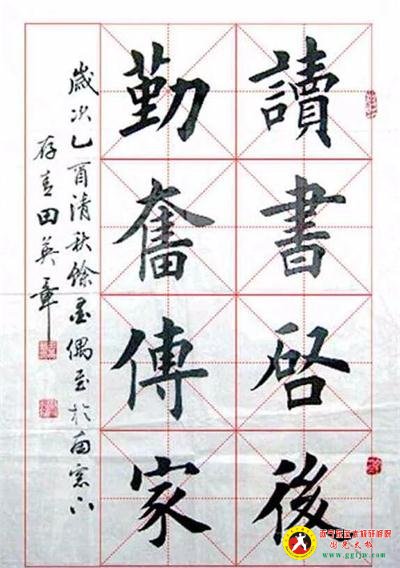 讀書啓後
勤奮傳家
歲次乙酉清秋餘墨偶至於南窓下
存青田英章
www.ggfjw.com